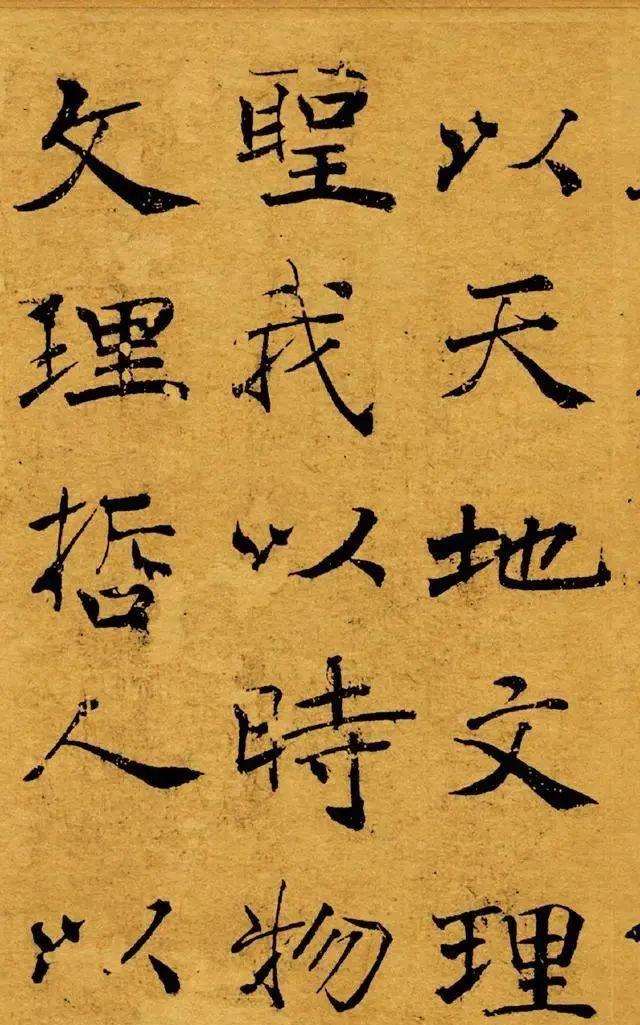 以天地文理
聖我以時物
文理哲人以